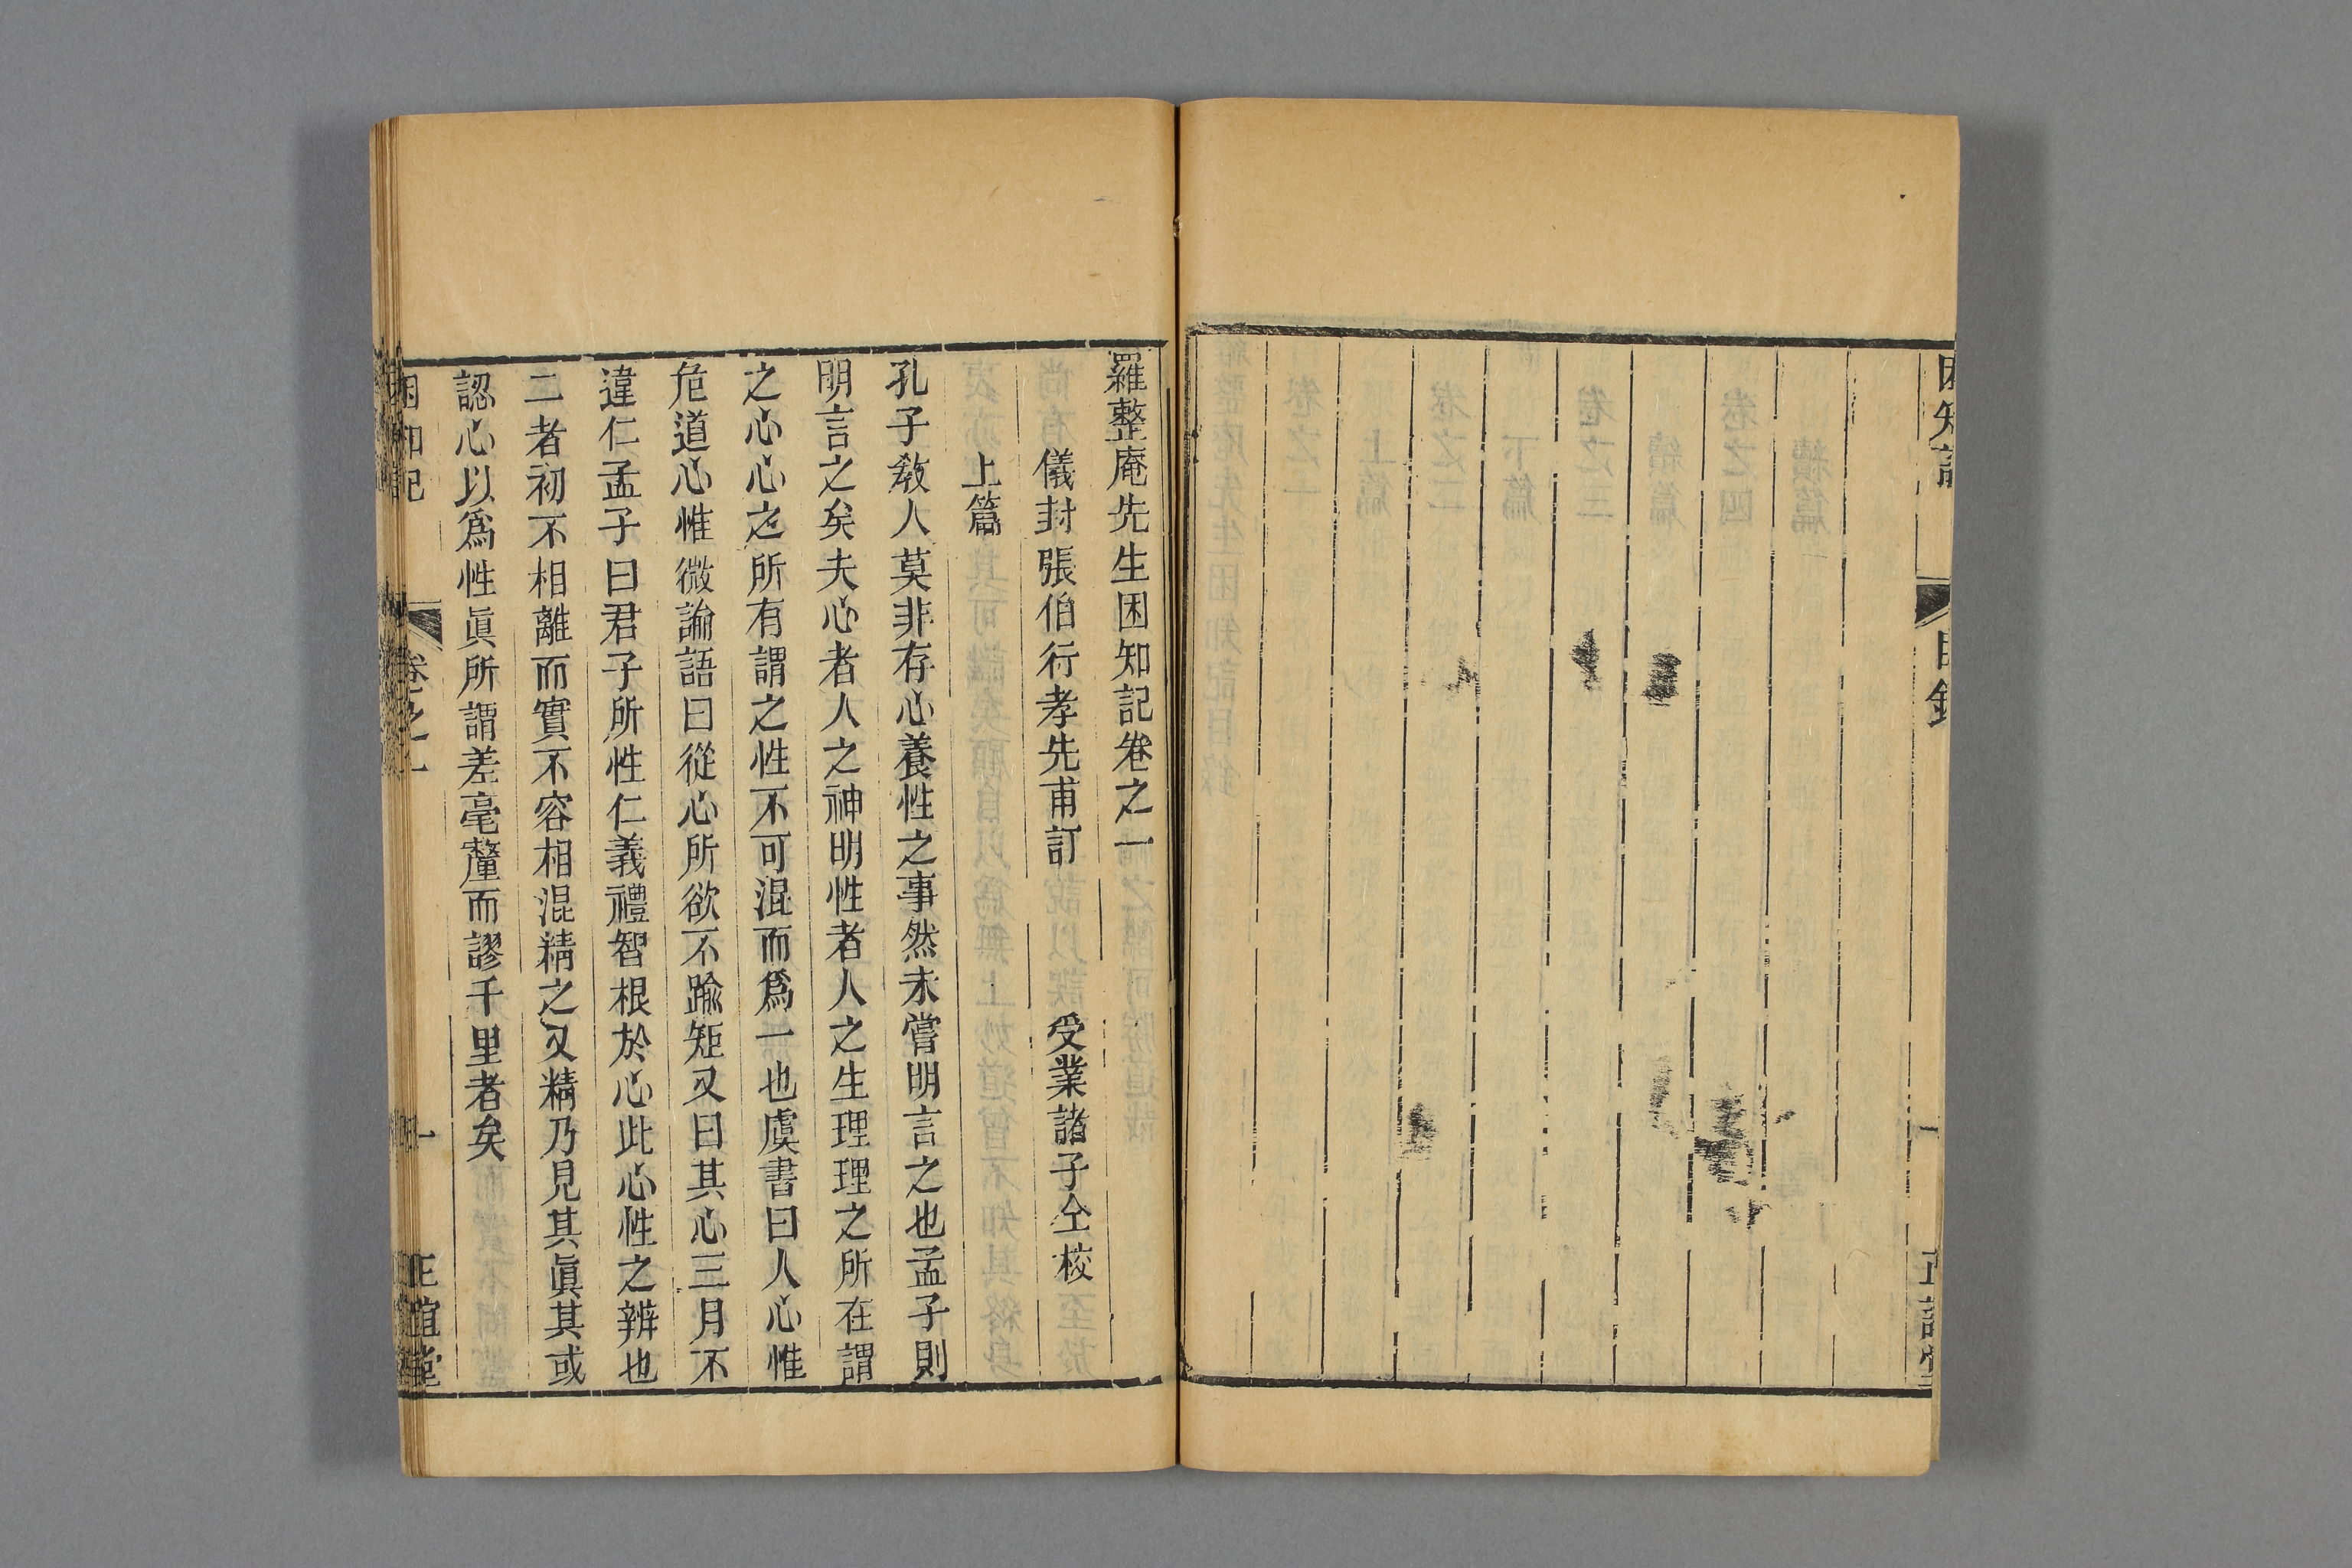 困知記
目錄
一
正誼堂
羅整庵先生困知記卷之一
儀封張伯行孝先甫訂 受業諸子仝校
上篇
孔子教人莫非存心養性之事然未嘗明言之也孟子則
明言之矣夫心者人之神明性者人之生理理之所在謂
之心心之所有謂之性不可混而為一也虞書曰人心惟
危道心惟微論語曰從心所欲不踰矩又曰其心三月不
違仁孟子曰君子所性仁義禮智根於心此心性之辨也
二者初不相離而實不容相混精之又精乃見其眞其或
認心以為性眞所謂差毫釐而謬千里者矣
困知記
卷之一
一
正誼堂